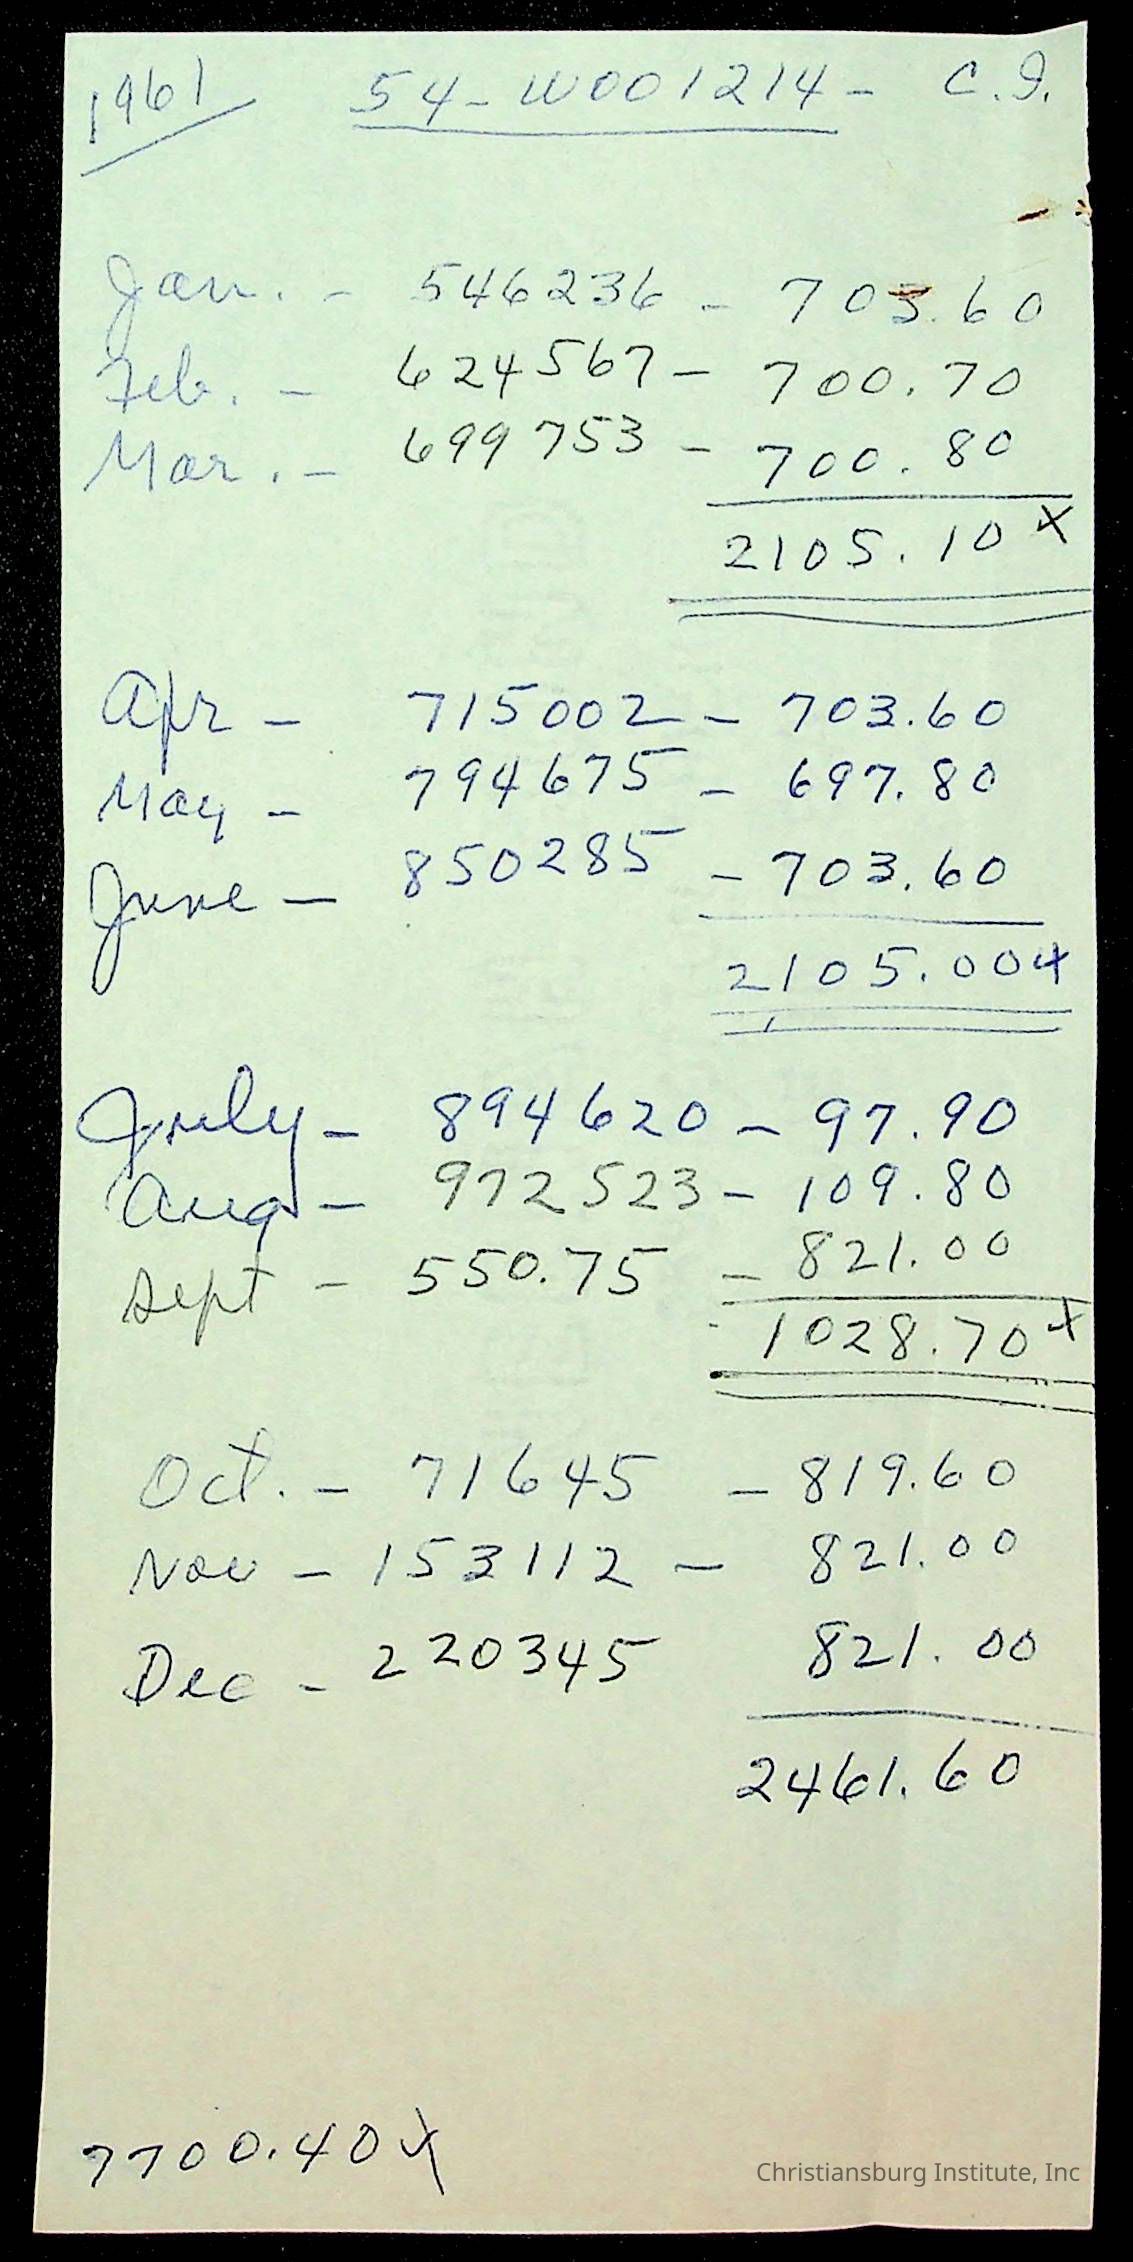 1961 54-W001214- C.I.
Jan. - 546236 - 703.60
Feb. - 624567 - 700.70
Mar. - 699753 - 700.80
2105.10 x
Apr - 715002 - 703.60
May - 794675 - 697.80
June - 850285 - 703.60
2105.00 x
July - 894620 - 97.90
Aug - 972523 - 109.80
Sept - 550.75 - 821.00
1028.70 x
Oct. - 71645 - 819.60
Nov - 153112 - 821.00
Dec - 220345 821.00
2461.60
7700.40 x
Christiansburg Institute, Inc